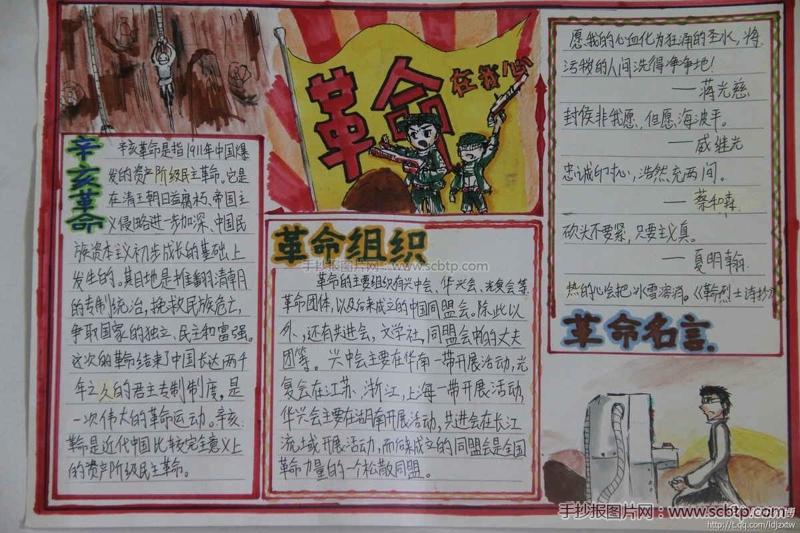 辛亥革命
辛亥革命是指1911年中国爆
发的资产阶级民主革命。它是
在清王朝日益腐朽、帝国主
义侵略进一步加深、中国民
族资本主义初步成长的基础上
发生的。其目地是推翻清朝
的专制统治,挽救民族危亡,
争取国家的独立、民主和富强。
这次的革命结束了中国长达两千
年之久的君主专制制度,是
一次伟大的革命运动。辛亥
革命是近代中国比较完全意义上
的资产阶级民主革命。
革命
在我心
革命组织
手抄报图片网:www.scbtp.com
革命的主要组织有兴中会、华兴会、光复会等
革命团体,以及后来成立的中国同盟会。除此以
外,还有共进会,文学社,同盟会中的丈夫
团等。兴中会主要在华南一带开展活动,光
复会在江苏、浙江,上海一带开展活动,
华兴会主要在湖南开展活动,共进会在长江
流域开展活动,而后来成立的同盟会是全国
革命力量的一个松散同盟。
愿我的心血化为狂涌的圣水,将
污秽的人间洗得净净地!
——蒋光慈
封侯非我愿,但愿海波平。
——戚继光
忠诚的心,浩然充两间。
——蔡和森
砍头不要紧,只要主义真。
——夏明翰
热的心会把冰雪溶消。《革命烈士诗抄》
革命名言
手抄报图片网:www.scbtp.com
http://t.qq.com/ldjzxtw